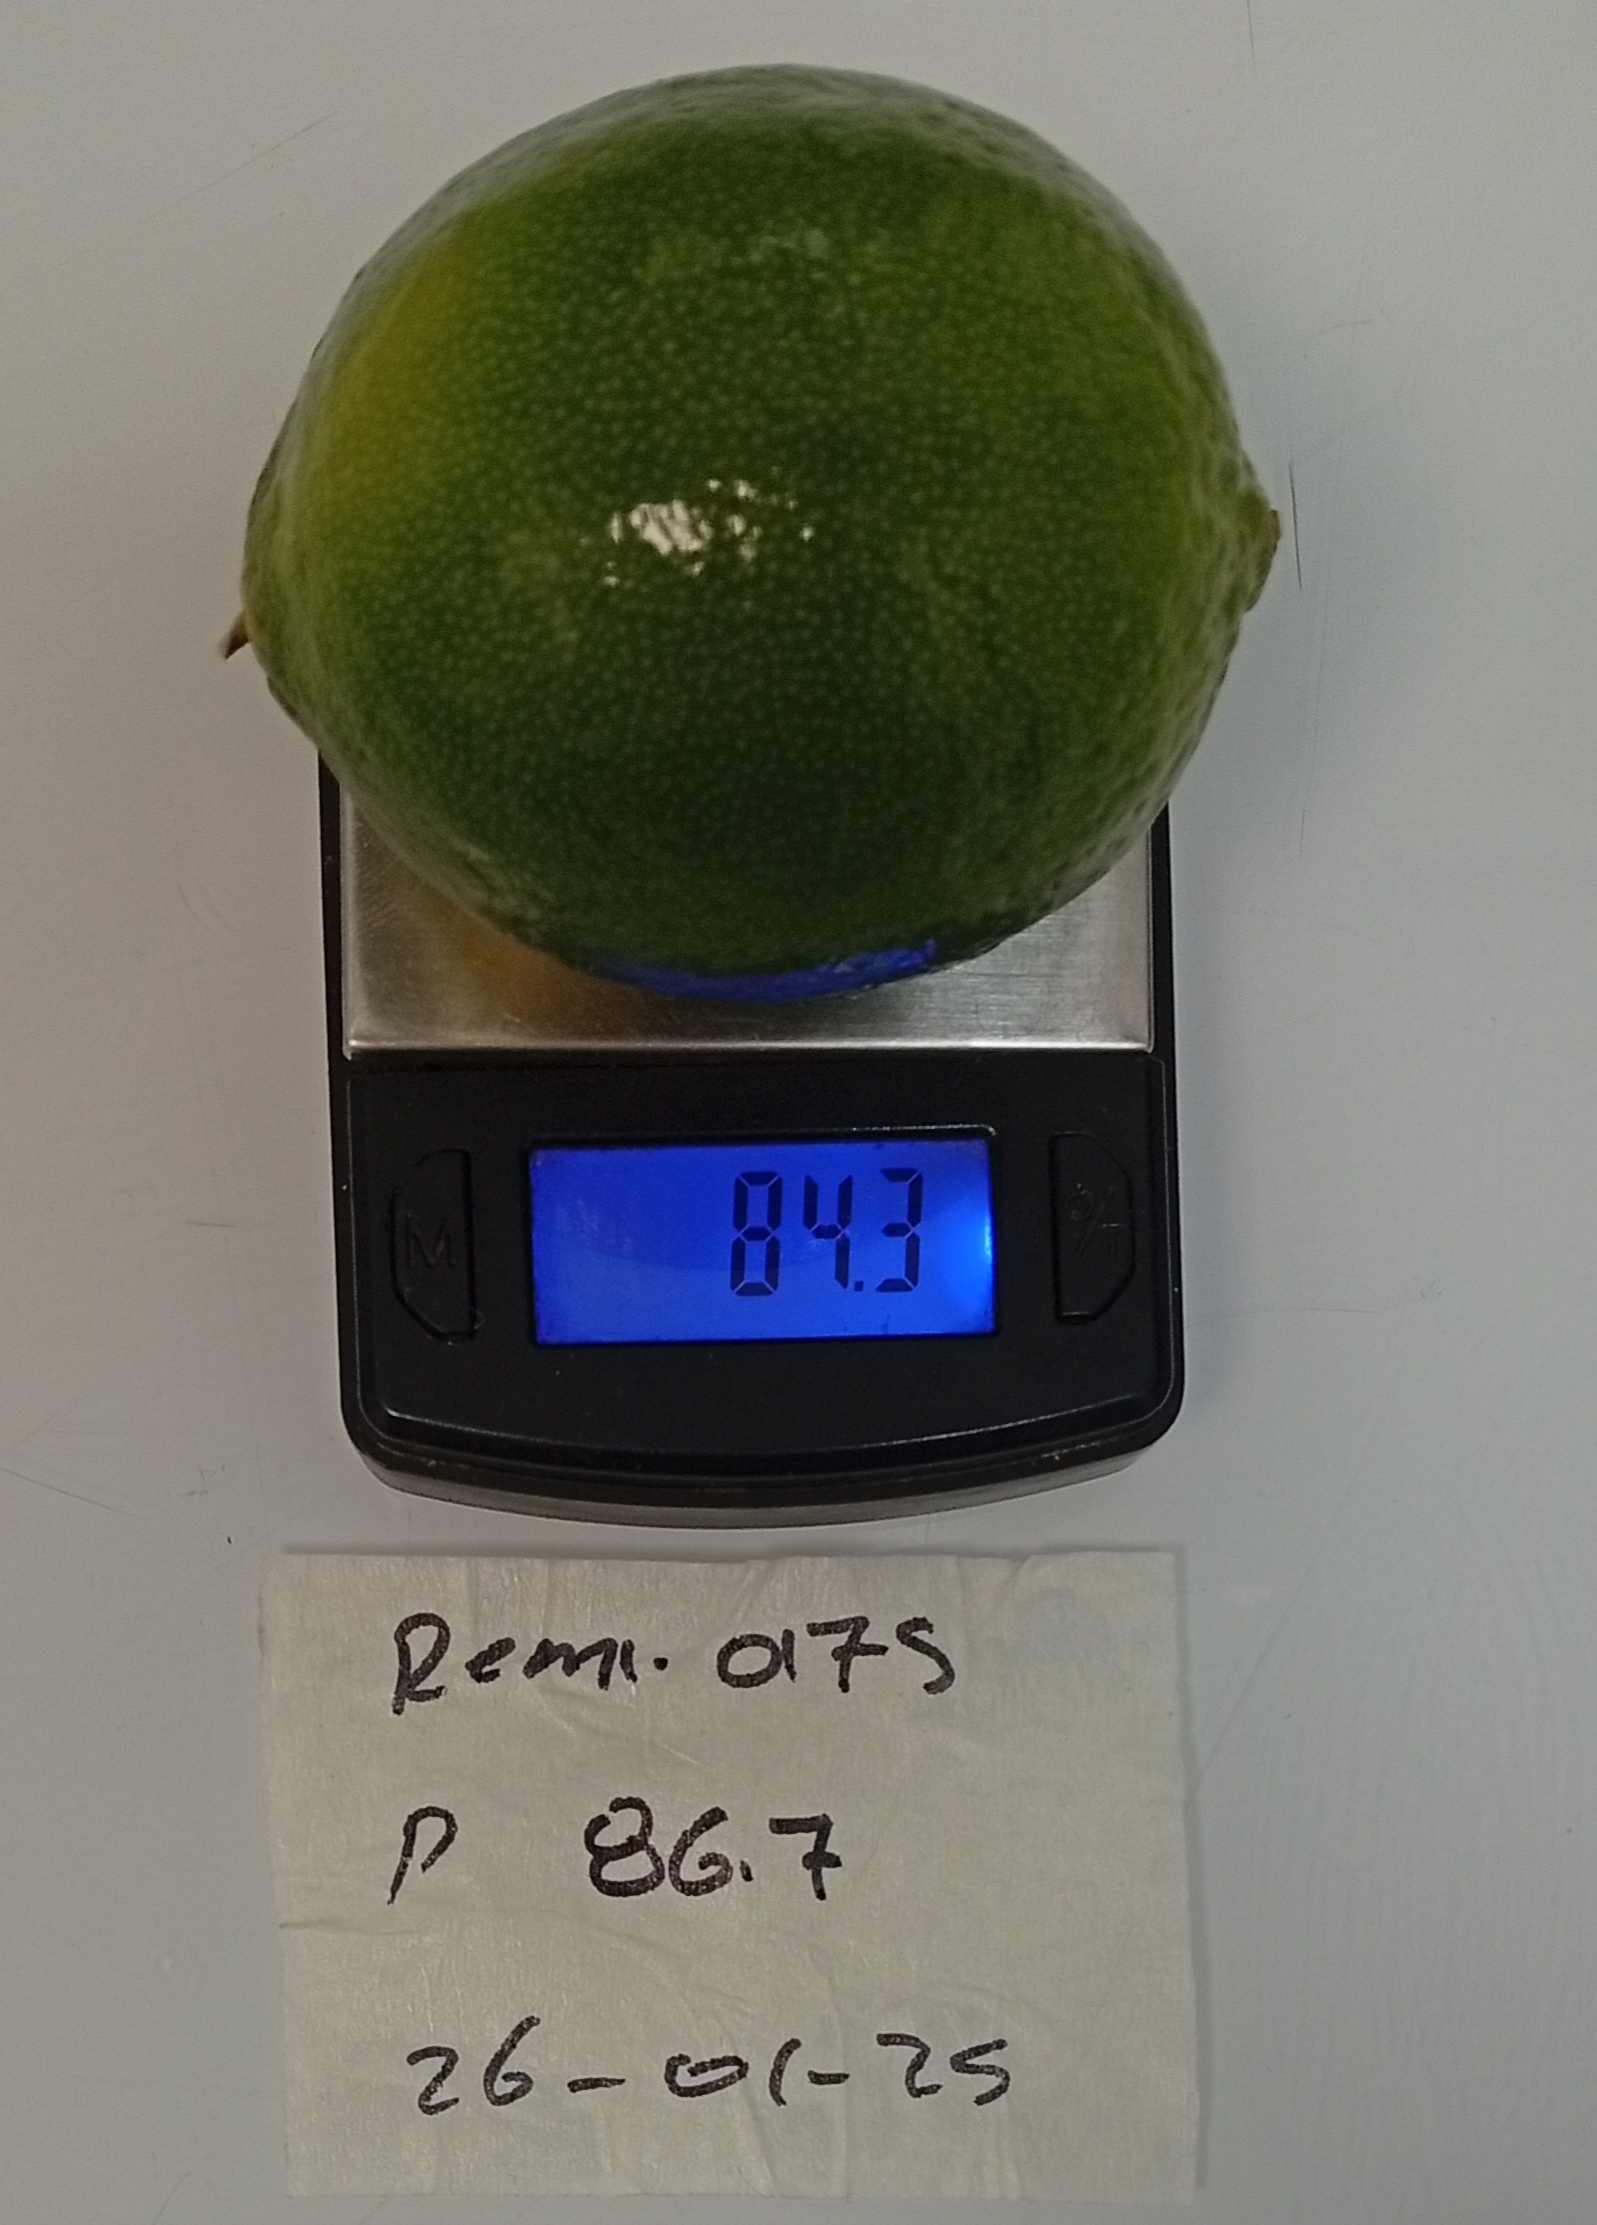 84.3
M
Remi. 0175
P 86.7
26-01-25